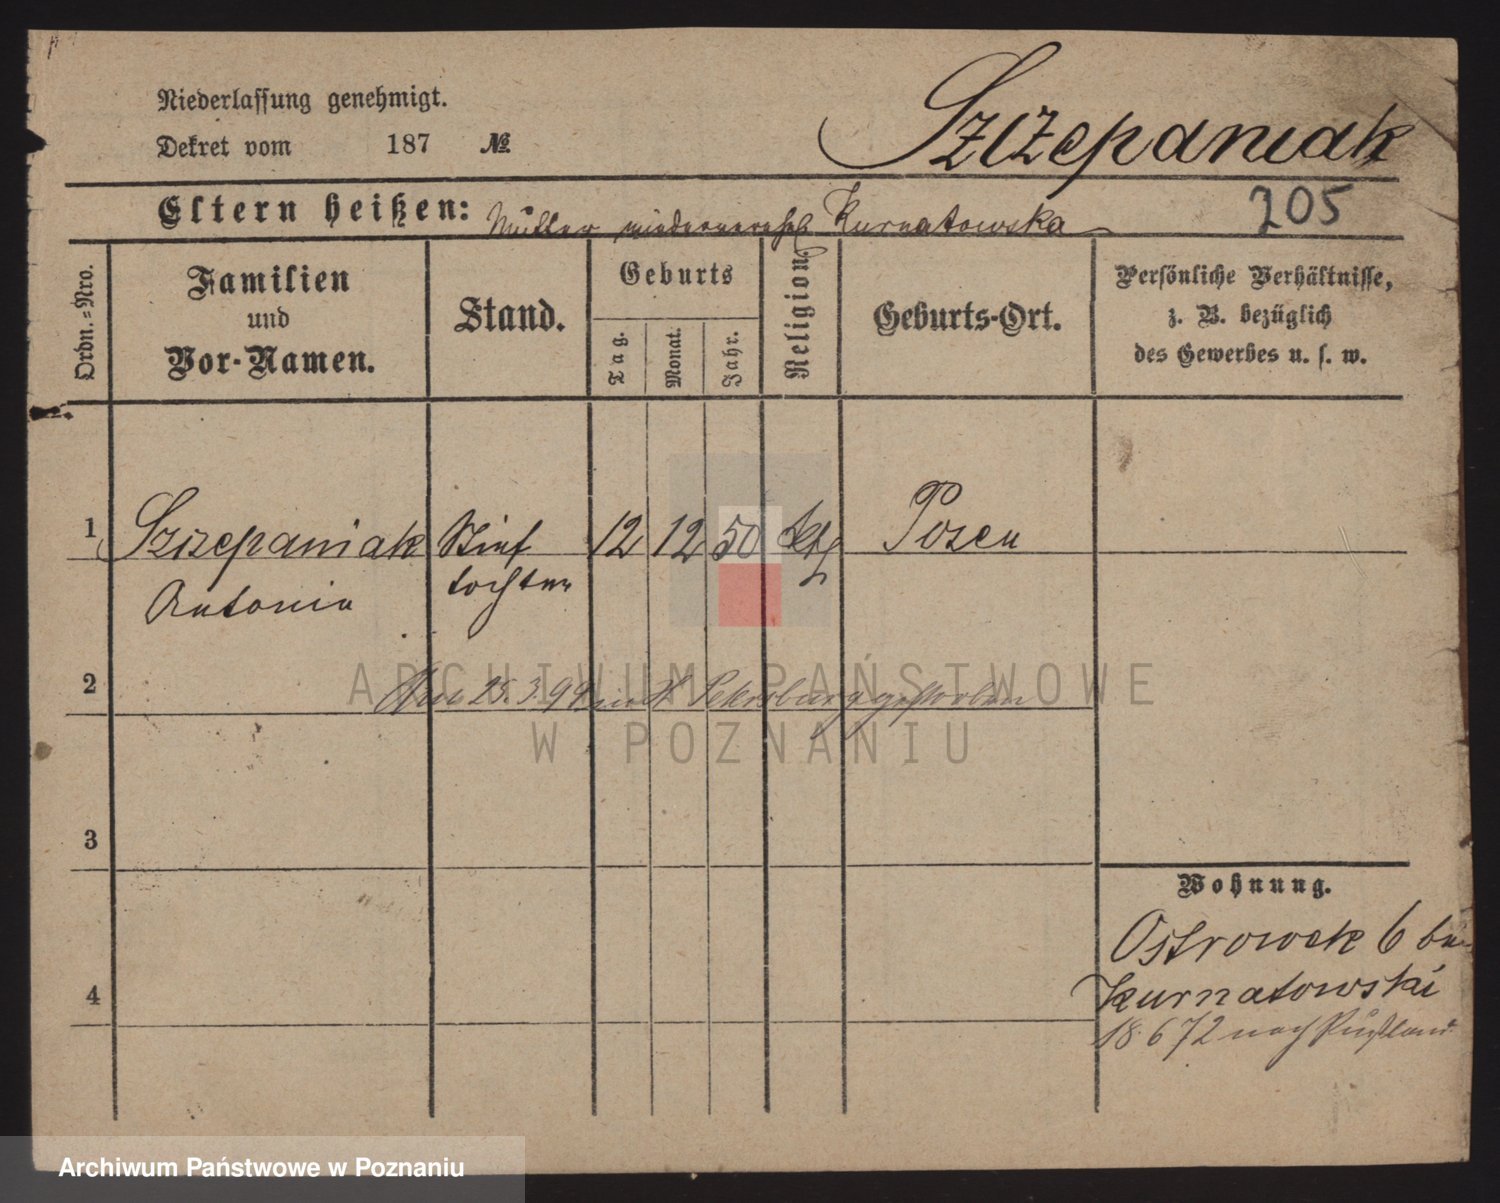 Niederlassung genehmigt.
Dekret vom 187 №
Szczepaniak
Eltern heißen: Mutter wiederverehel Kurnatowska
205
Ordn.-Nro.
Familien
und
Vor-Namen.
Stand.
Geburts
Tag.
Monat.
Jahr.
Religion
Geburts-Ort.
Persönliche Verhältnisse,
z. B. bezüglich
des Gewerbes u. s. w.
1 Szczepaniak Stief 12 12 50 kth Posen
Antonia tochter
2 Am 25.3.94 in St Petersburg gestorben
3
4
Wohnung.
Ostrowek 6 bei
Kurnatowski
18.6 72 nach Rußland
ARCHIWUM PAŃSTWOWE
W POZNANIU
Archiwum Państwowe w Poznaniu